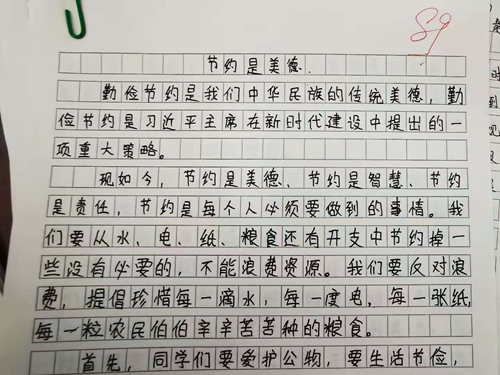 89
节约是美德.
勤俭节约是我们中华民族的传统美德，勤
俭节约是习近平主席在新时代建设中提出的一
项重大策略。
现如今，节约是美德、节约是智慧、节约
是责任，节约是每个人必须要做到的事情。我
们要从水、电、纸、粮食还有开支中节约掉一
些没有必要的，不能浪费资源。我们要反对浪
费，提倡珍惜每一滴水，每一度电，每一张纸，
每一粒农民伯伯辛辛苦苦种的粮食。
首先，同学们要爱护公物，要生活节俭，